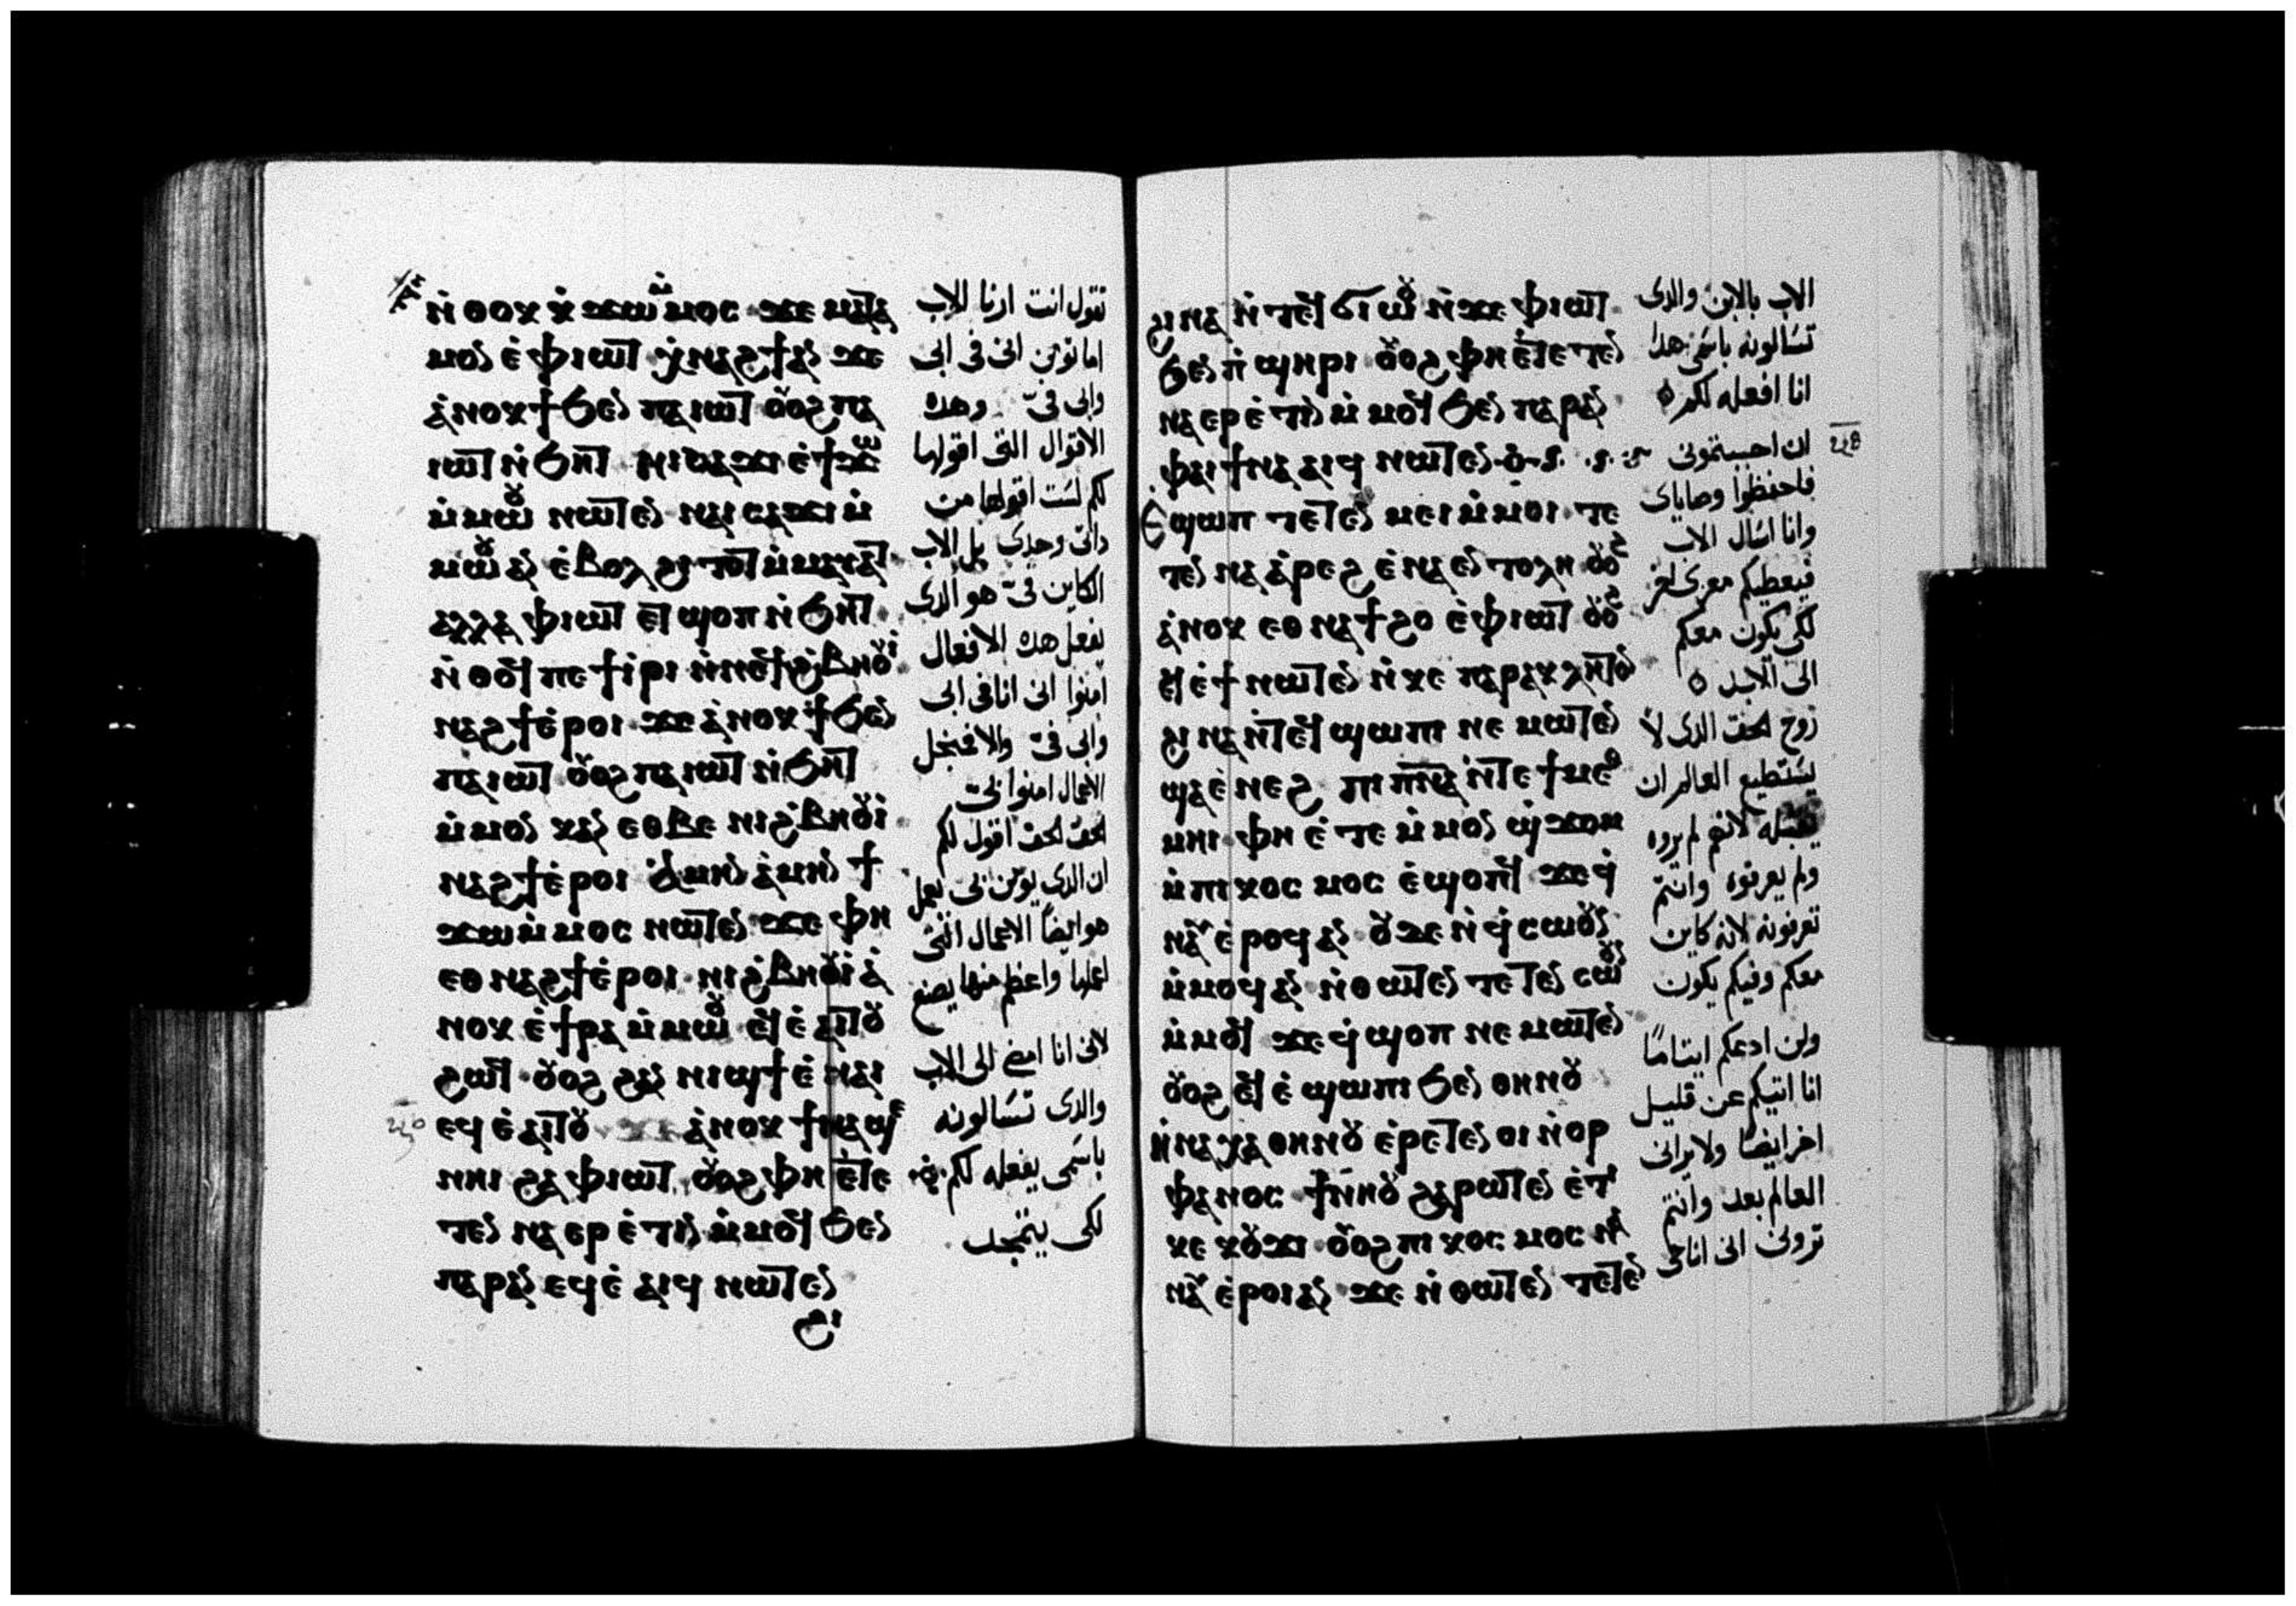 ⲛ̇ⲑⲟⲕ ⲕ̇ϫⲱⲙ̇ⲙⲟⲥ ϫⲉ ⲙⲁⲧⲁ
ⲙⲟⲛ ⲉ̇ⲫⲓⲱⲧ ⲭ̇ⲛⲁϩϯⲁⲛ ϫⲉ
ⲁ̇ⲛⲟⲕ ϯϧⲉⲛ ⲡⲁⲓⲱⲧ ⲟⲩⲟϩ ⲡⲁ
ⲓⲱⲧ ⲛ̇ϧⲏⲧ ⲛⲓⲥⲁϫⲓ ⲉ̇ϯϫⲱ
ⲙ̇ⲙⲱⲟⲩ ⲛⲱⲧⲉⲛ ⲛⲁⲓⲥⲁϫⲓ ⲙ̇
ⲙⲱⲟⲩ ⲁⲛ ⲉ̇ⲃⲟⲗ ϩⲓⲧⲟⲧ ⲙ̇ⲙⲁⲩⲁⲧ
ⲁⲗⲗⲁ ⲫⲓⲱⲧ ⲉⲧϣⲟⲡ ⲛ̇ϧⲏⲧ
ⲛ̇ⲑⲟϥ ⲡⲉⲧⲓ̇ⲣⲓ ⲛ̇ⲛⲉϥϩ̇ⲃⲏⲟⲩⲓ
ⲛⲁϩϯⲉ̇ⲣⲟⲓ ϫⲉ ⲁ̇ⲛⲟⲕ ϯϧⲉⲛ
ⲡⲁⲓⲱⲧ ⲟⲩⲟϩ ⲡⲁⲓⲱⲧ ⲛ̇ϧⲏⲧ
ⲙ̇ⲙⲟⲛ ⲕⲁⲛ ⲉⲑⲃⲉ ⲛⲓϩ̇ⲃⲏⲟⲩⲓ̇
ⲛⲁϩϯⲉ̇ⲣⲟⲓ ⲁ̇ⲙⲏⲛ ⲁ̇ⲙⲏⲛ ϯ
ϫⲱⲙ̇ⲙⲟⲥ ⲛⲱⲧⲉⲛ ϫⲉ ⲫⲏ
ⲉⲑⲛⲁϩϯⲉ̇ⲣⲟⲓ ⲛⲓϩ̇ⲃⲏⲟⲩⲓ̇ ⲁ̇
ⲛⲟⲕ ⲉ̇ϯⲣⲁ ⲙ̇ⲙⲱⲟⲩ ⲉϥⲉ̇ⲁⲓⲧⲟⲩ
ϩⲱϥ ⲟⲩⲟϩ ϩⲁⲛ ⲛⲓϣϯ ⲉ̇ⲛⲁⲓ
ⲉϥⲉ̇ⲁⲓⲧⲟⲩ ϫⲉ ⲁ̇ⲛⲟⲕ ϯⲛⲁϣⲉ
ⲛⲏⲓ ϩⲁ ⲫⲓⲱⲧ ⲟⲩⲟϩ ⲫⲏ ⲉ̇ⲧⲉ
ⲧⲉⲛⲛⲁⲉⲣⲉ̇ⲧⲓⲛ ⲙ̇ⲙⲟϥ ϧⲉⲛ
ⲡⲁⲣⲁⲛ ⲉϥⲉ̇ⲁⲓϥ ⲛⲱⲧⲉⲛ
ϩⲓ
تقول انت ارنا الاب
اما تومن انى فى ابى
وابى فىّ وهده
الاقوال التى اقولها
لكم لست اقولها من
داتى وحدى بل الاب
الكاين فىّ هو الدى
يفعل هده الافعال
امنوا انى انا فى ابى
وابى فىّ والا فبنجل
الاعمال امنوا بى
الحق الحق اقول لكم
ان الدى يومن بى يعمل
هو ايضًا الاعمال التى
اعملها واعظم منها يصنع
لانى انا امضى الى الاب
والدى تسالونه
باسمى يفعله لكم
لكى يتمجد
ϩⲓⲛⲁ ⲛ̇ⲧⲉϥϭⲓⲱⲟⲩ ⲛ̇ϫⲉ ⲫⲓⲱⲧ
ϧⲉⲛ ⲡ̇ϣⲏⲣⲓ ⲟⲩⲟϩ ⲫⲏ ⲉ̇ⲧⲉⲧⲉⲛ
ⲛⲁⲉⲣⲉ̇ⲧⲓⲛ ⲙ̇ⲙⲟϥ ϧⲉⲛ ⲡⲁⲣⲁⲛ
ⲫⲁⲓ ϯⲛⲁⲁⲓϥ ⲛⲱⲧⲉⲛ
Ⲉϣⲱⲡ ⲧⲉⲧⲉⲛⲙⲉⲓ ⲙ̇ⲙⲟⲓ ⲧⲉ
ⲧⲉⲛⲛⲁⲁ̇ⲣⲉϩ ⲉ̇ⲛⲁⲉⲛⲧⲟⲗⲏ ⲟⲩⲟϩ
ⲁ̇ⲛⲟⲕ ⲉⲑⲛⲁϯϩⲟ ⲉ̇ⲫⲓⲱⲧ ⲟⲩⲟϩ
ⲉϥⲉ̇ϯ ⲛⲱⲧⲉⲛ ⲛ̇ⲕⲉ ⲡⲁⲣⲁⲕⲗⲏⲧⲟⲛ
ϩⲓⲛⲁ ⲛ̇ⲧⲉϥϣⲱⲡⲓ ⲛⲉⲙⲱⲧⲉⲛ
ϣⲁⲉ̇ⲛⲉϩ ⲡⲓⲡⲛⲁ ⲛ̇ⲧⲉ ϯⲙⲉⲑ
ⲙⲏⲓ ⲫⲏ ⲉ̇ⲧⲉ ⲙ̇ⲙⲟⲛ ϣ̇ϫⲟⲙ
ⲙ̇ⲡⲓⲕⲟⲥⲙⲟⲥ ⲉ̇ϣⲟⲡϥ ϫⲉ ϥ̇
ⲛⲁⲩ ⲉ̇ⲣⲟϥ ⲁⲛ ⲟⲩϫⲉ ⲛ̇ϥ̇ⲥⲱⲟⲩⲛ
ⲙ̇ⲙⲟϥ ⲁⲛ ⲛ̇ⲑⲱⲧⲉⲛ ⲧⲉⲧⲉⲛⲥⲱⲟⲩⲛ
ⲙ̇ⲙⲟϥ ϫⲉ ϥ̇ϣⲟⲡ ⲛⲉⲙⲱⲧⲉⲛ
ⲟⲩⲟϩ ⲉϥⲉ̇ϣⲱⲡⲓ ϧⲉⲛ ⲑⲏⲛⲟⲩ
ⲛ̇ⲛⲁⲭⲁ ⲑⲏⲛⲟⲩ ⲉ̇ⲣⲉⲧⲉⲛⲟⲓ ⲛ̇ⲟⲣ
ⲫⲁⲛⲟⲥ ϯⲛ̇ⲛⲏⲟⲩ ϩⲁⲣⲱⲧⲉⲛ ⲉ̇ⲧⲓ
ⲕⲉ ⲕⲟⲩϫⲓ ⲟⲩⲟϩ ⲡⲓⲕⲟⲥⲙⲟⲥ ⲛⲁ
ⲛⲁⲩ ⲉ̇ⲣⲟⲓ ⲁⲛ ϫⲉ ⲛ̇ⲑⲱⲧⲉⲛ ⲧⲉⲧⲉⲛ
الاب بالابن والدى
تسالونه باسمى هدا
انا افعله لكم
ان احببتمونى
فاحفظوا وصاياى
وانا اسال الاب
فيعطيكم معزى اخر
لكى يكون معكم
الى الابد
روح الحق الدى لا
يستطيع العالم ان
يقبله لانهم لم يروه
ولم يعرفوه وانتم
تعرفونه لانه كاين
معكم وفيكم يكون
ولن ادعكم ايتامًا
انا اتيكم عن قليل
اخر ايضًا ولا يرانى
العالم بعد وانتم
ترونى انى انا حى